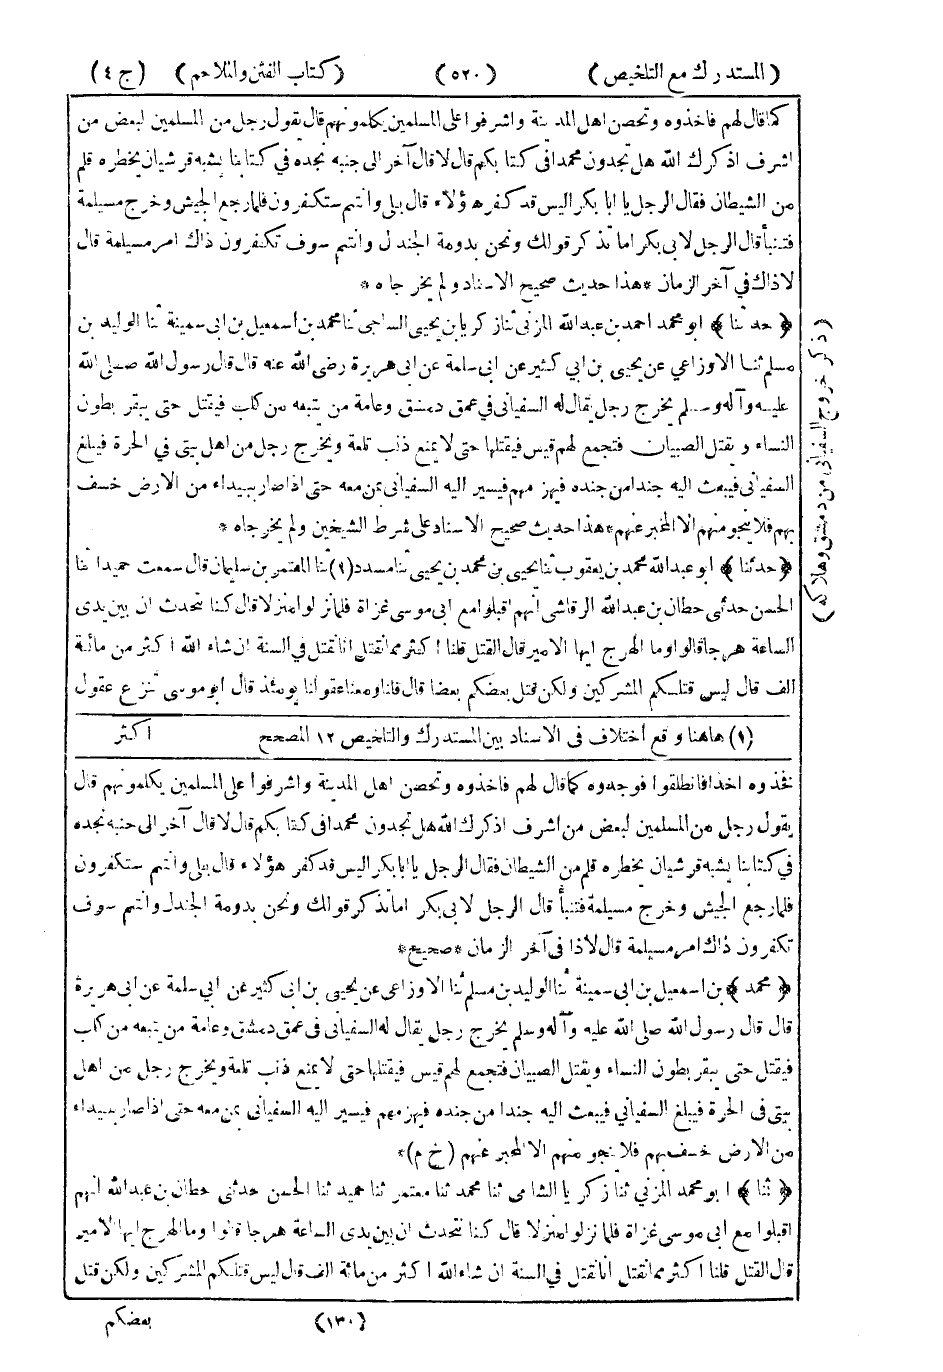 (المستدرك مع التلخيص) (٥٢٠) (كتاب الفتن والملاحم) (ج ٤)
كما قال لهم فاخذوه وتحصن اهل المدينة واشرفوا على المسلمين يكلمونهم قال يقول رجل من المسلمين لبعض من
اشرف اذكرك الله هل تجدون محمدا في كتابكم قال لا قال آخر الى جنبه نجده في كتابنا يشبه قرشيان يخطره قلم
من الشيطان فقال الرجل يا ابا بكر اليس قد كفر هؤلاء قال بلى وانتم ستكفرون فلما رجع الجيش وخرج مسيلمة
فتنبأ قال الرجل لابي بكر اما تذكر قولك ونحن بدومة الجندل وانتم سوف تكفرون ذاك امر مسيلمة قال
لا ذاك في آخر الزمان * هذا حديث صحيح الاسناد ولم يخرجاه *
﴿ حدثنا ﴾ ابو محمد احمد بن عبد الله المزنى ثنا زكريا بن يحيى الساجى ثنا محمد بن اسمعيل بن ابى سمينة ثنا الوليد بن
مسلم ثنا الاوزاعي عن يحيى بن ابي كثير عن ابى سلمة عن ابى هريرة رضى الله عنه قال قال رسول الله صلى الله
عليه وآله وسلم يخرج رجل يقال له السفياني في عمق دمشق وعامة من يتبعه من كلب فيقتل حتى يبقر بطون
النساء ويقتل الصبيان فتجمع لهم قيس فيقتلها حتى لا يمنع ذنب تلعة ويخرج رجل من اهل بيتى في الحرة فيبلغ
السفيانى فيبعث اليه جندا من جنده فيهزمهم فيسير اليه السفيانى بمن معه حتى اذا صار ببيداء من الارض خسف
بهم فلا ينجو منهم الا المخبر عنهم * هذا حديث صحيح الاسناد على شرط الشيخين ولم يخرجاه *
﴿ حدثنا ﴾ ابو عبد الله محمد بن يعقوب ثنا يحيى بن محمد بن يحيى ثنا مسدد (١) ثنا المعتمر بن سليمان قال سمعت حميدا ثنا
الحسن حدثى حطان بن عبد الله الرقاشى انهم اقبلوا مع ابى موسى غزاة فلما نزلوا منزلا قال كنا نتحدث ان بين يدى
الساعة هرجا قالوا وما الهرج ايها الامير قال القتل قلنا اكثر مما نقتل انا نقتل في السنة ان شاء الله اكثر من مائة
الف قال ليس قتلكم المشركين ولكن قتل بعضكم بعضا قال قلنا ومعنا عقولنا يومئذ قال ابو موسى تنزع عقول
(١) هاهنا وقع أختلاف فى الاسناد بين المستدرك والتلخيص ١٢ المصحح اكثر
(ذكر خروج السفيانى من دمشق وهلاكه)
فخذوه اخذا فانطلقوا فوجدوه كما قال لهم فاخذوه وتحصن اهل المدينة واشرفوا على المسلمين يكلمونهم قال
يقول رجل من المسلمين لبعض من اشرف اذكرك الله هل تجدون محمدا فى كتابكم قال لا قال آخر الى جنبه نجده
في كتابنا يشبه قرشيان يخطره قلم من الشيطان فقال الرجل يا ابا بكر اليس قد كفر هؤلاء قال بلى وانتم ستكفرون
فلما رجع الجيش وخرج مسيلمة فتنبأ قال الرجل لابى بكر اما تذكر قولك ونحن بدومة الجندل وانتم سوف
تكفرون ذاك امر مسيلمة قال لا ذا فى آخر الزمان * صحيح *
﴿ محمد ﴾ بن اسمعيل بن ابى سمينة ثنا الوليد بن مسلم ثنا الاوزاعى عن يحيى بن ابى كثير عن ابي سلمة عن ابى هريرة
قال قال رسول الله صلى الله عليه وآله وسلم يخرج رجل يقال له السفيانى فى عمق دمشق وعامة من يتبعه من كلب
فيقتل حتى يبقر بطون النساء ويقتل الصبيان فتجمع لهم قيس فيقتلها حتى لا يمنع ذنب تلعة ويخرج رجل من اهل
بيتى فى الحرة فيبلغ السفياني فيبعث اليه جندا من جنده فيهزمهم فيسير اليه السفيانى بمن معه حتى اذا صار ببيداء
من الارض خسف بهم فلا ينجو منهم الا المخبر عنهم (خ م) *
﴿ ثنا ﴾ ابو محمد المزني ثنا زكريا الشامى ثنا محمد ثنا معتمر ثنا حميد ثنا الحسن حدثى حطان بن عبد الله انهم
اقبلوا مع ابى موسى غزاة فلما نزلوا منزلا قال كنا نتحدث ان بين يدى الساعة هرجا قالوا وما الهرج ايها الامير
قال القتل قلنا اكثر مما نقتل انا نقتل في السنة ان شاء الله اكثر من مائة الف قال ليس قتلكم المشركين ولكن قتل
(١٣٠) بعضكم